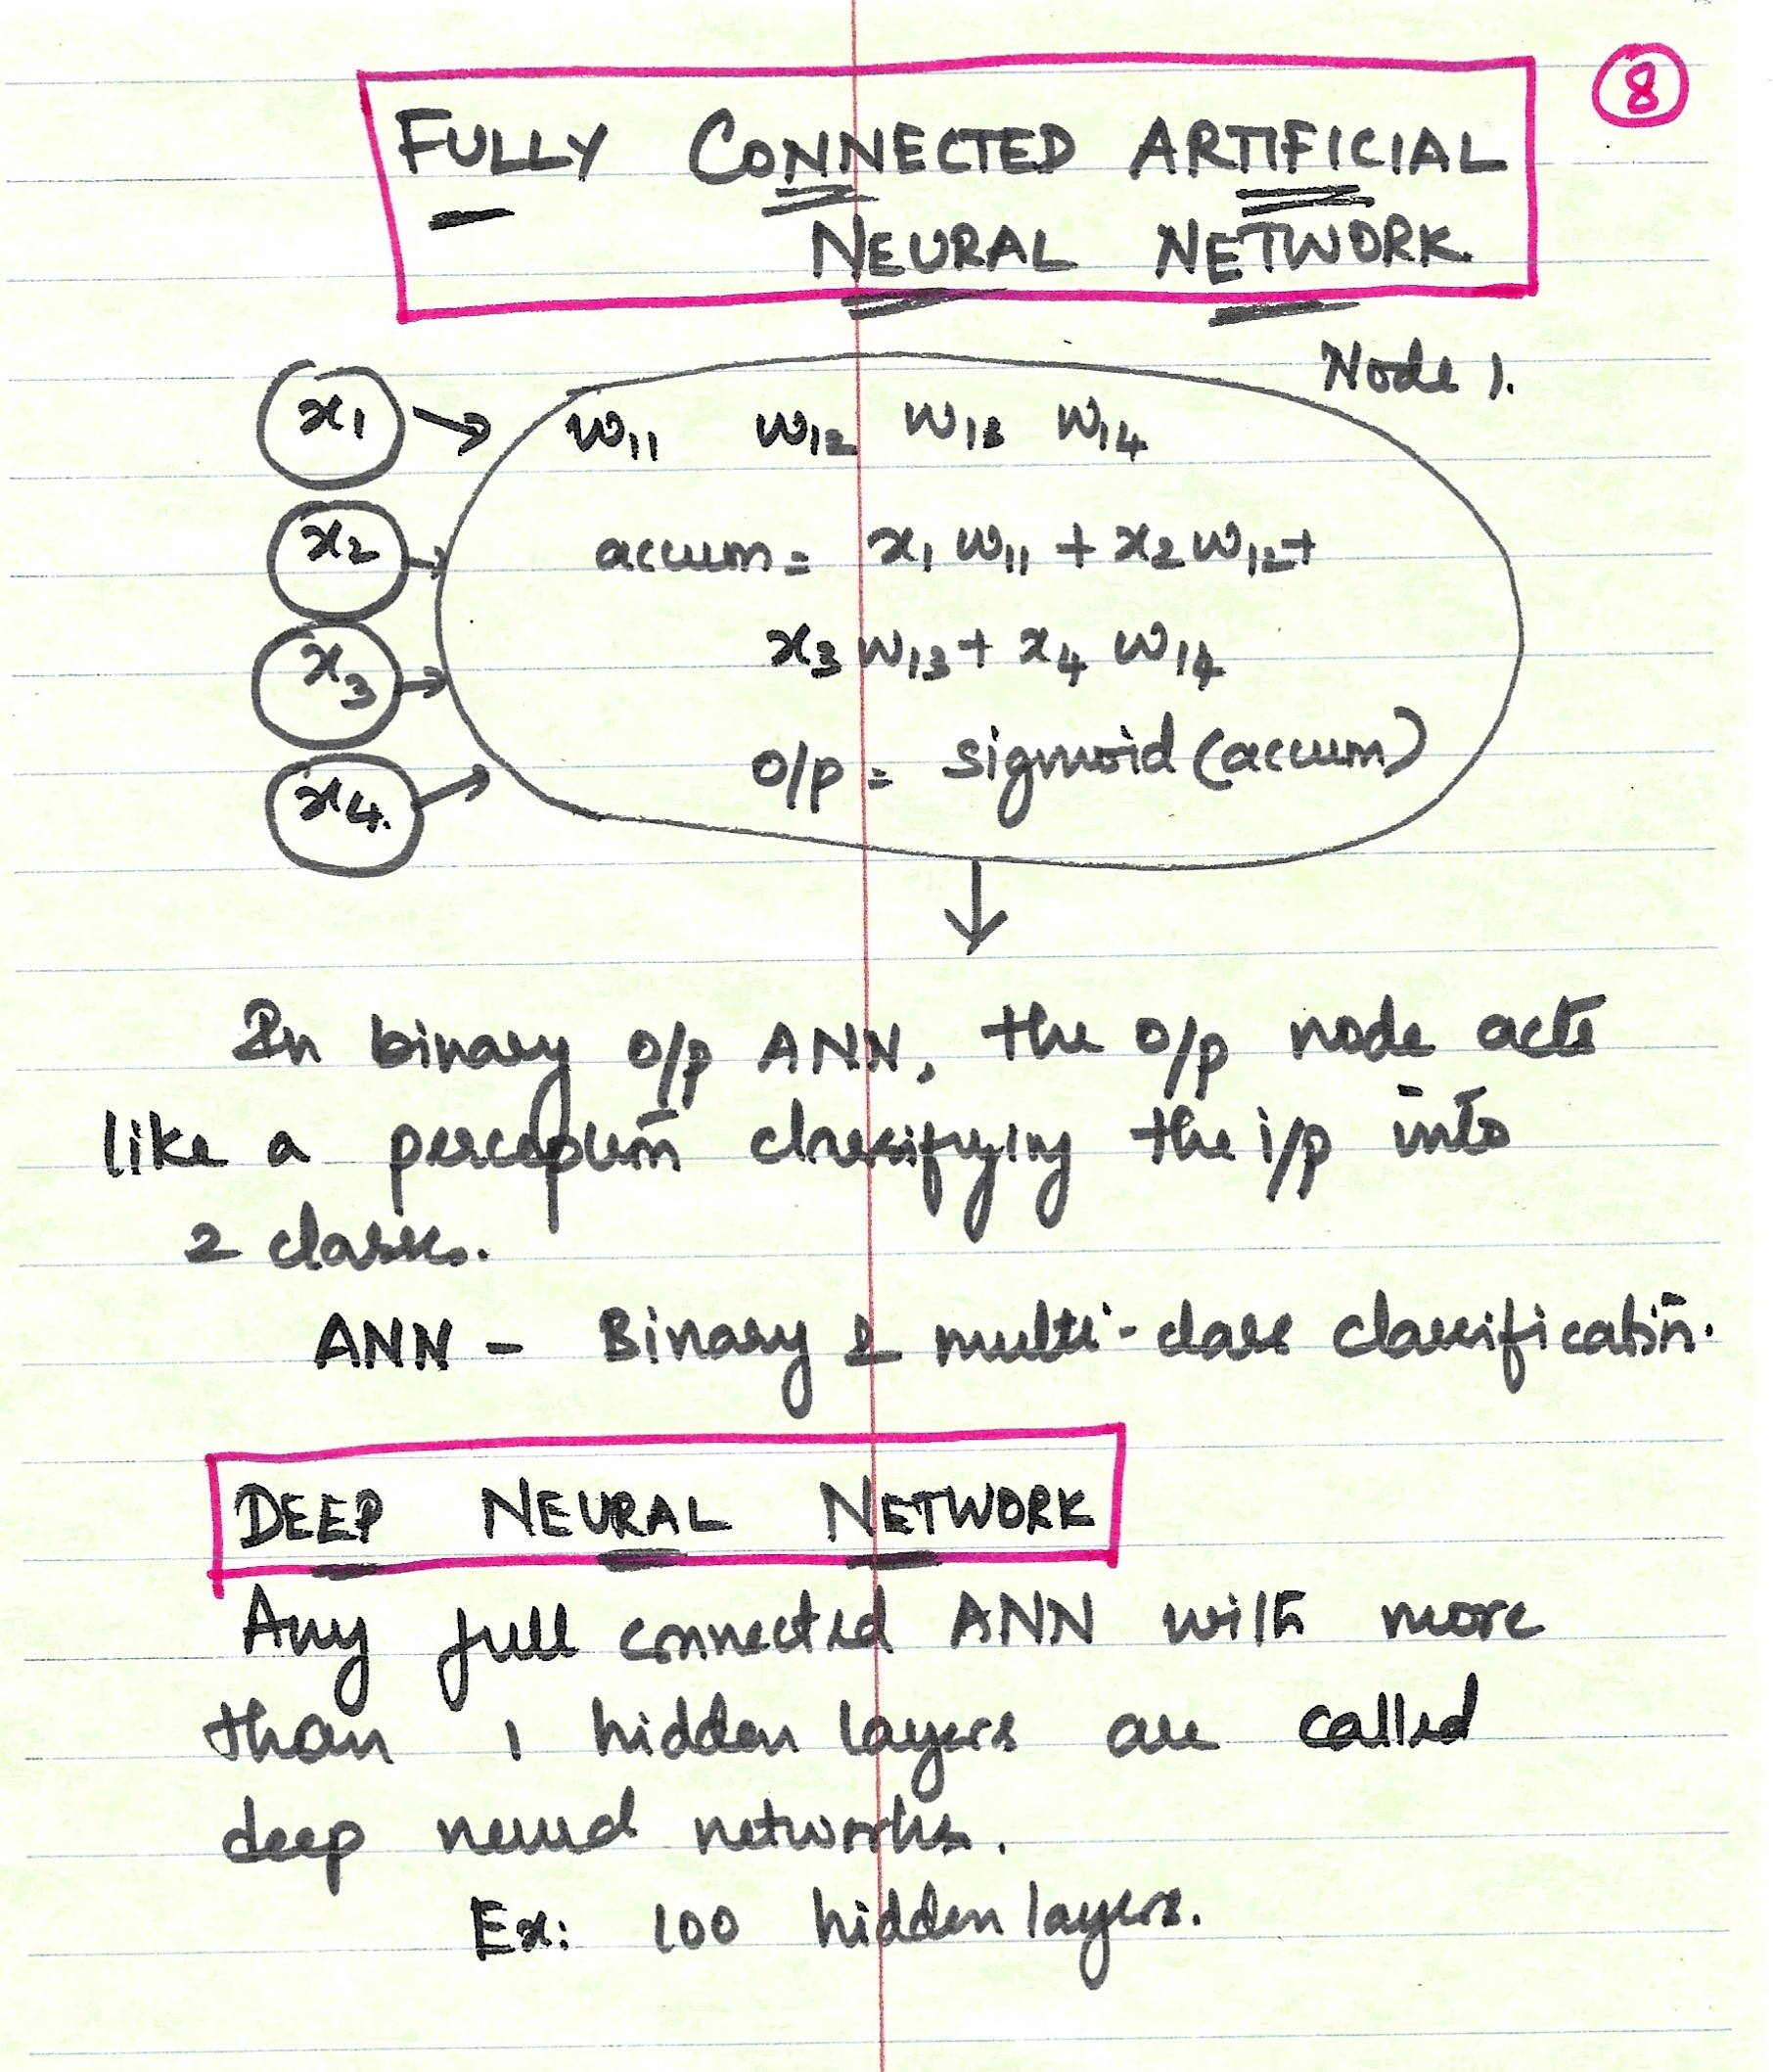 8
FULLY CONNECTED ARTIFICIAL
NEURAL NETWORK.
Node 1.
x1 → w11 w12 w13 w14
x2 → accum = x1 w11 + x2 w12 +
x3 → x3 w13 + x4 w14
x4. → o/p = sigmoid (accum)
In binary o/p ANN, the o/p node acts
like a perceptron classifying the i/p into
2 classes.
ANN - Binary & multi-class classification.
DEEP NEURAL NETWORK
Any full connected ANN with more
than 1 hidden layers are called
deep neural networks.
Ex: 100 hidden layers.